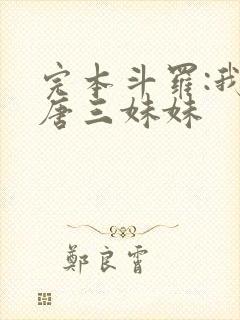 完本斗罗:我
唐三妹妹
郑良霄